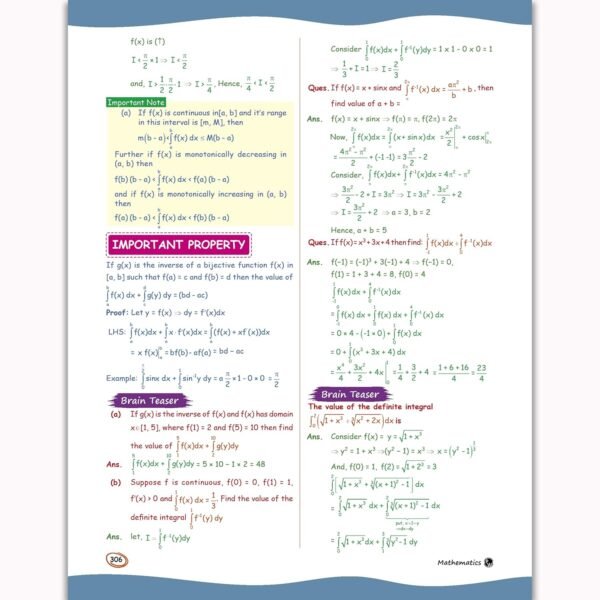 f(x) is (↑)
I < π/2 × 1 ⇒ I < π/2
and, I > 1/2 · π/2 · 1 ⇒ I > π/4. Hence, π/4 < I < π/2
Important Note
(a) If f(x) is continuous in[a, b] and it's range
in this interval is [m, M], then
m(b - a) < ∫_a^b f(x) dx ≤ M(b - a)
Further if f(x) is monotonically decreasing in
(a, b) then
f(b) (b - a) < ∫_a^b f(x) dx < f(a) (b - a)
and if f(x) is monotonically increasing in (a, b)
then
f(a) (b - a) < ∫_a^b f(x) dx < f(b) (b - a)
IMPORTANT PROPERTY
If g(x) is the inverse of a bijective function f(x) in
[a, b] such that f(a) = c and f(b) = d then the value of
∫_a^b f(x) dx + ∫_c^d g(y) dy = (bd - ac)
Proof: Let y = f(x) ⇒ dy = f'(x)dx
LHS: ∫_a^b f(x)dx + ∫_a^b x · f'(x)dx = ∫_a^b (f(x) + xf'(x))dx
= x f(x)]_a^b = bf(b) - af(a) = bd - ac
Example: ∫_0^{π/2} sinx dx + ∫_0^1 sin⁻¹y dy = π/2 × 1 - 0 × 0 = π/2
Brain Teaser
(a) If g(x) is the inverse of f(x) and f(x) has domain
x∈[1, 5], where f(1) = 2 and f(5) = 10 then find
the value of ∫_1^5 f(x)dx + ∫_2^10 g(y)dy
Ans. ∫_1^5 f(x)dx + ∫_2^10 g(y)dy = 5 × 10 - 1 × 2 = 48
(b) Suppose f is continuous, f(0) = 0, f(1) = 1,
f'(x) > 0 and ∫_0^1 f(x) dx = 1/3. Find the value of the
definite integral ∫_0^1 f⁻¹(y) dy
Ans. let, I = ∫_0^1 f⁻¹(y)dy
306
Consider ∫_0^1 f(x)dx + ∫_0^1 f⁻¹(y)dy = 1 x 1 - 0 x 0 = 1
⇒ 1/3 + I = 1 ⇒ I = 2/3
Ques. If f(x) = x + sinx and ∫_π^{2π} f⁻¹(x) dx = aπ²/b + b, then
find value of a + b =
Ans. f(x) = x + sinx ⇒ f(π) = π, f(2π) = 2π
Now, ∫_π^{2π} f(x)dx = ∫_π^{2π} (x + sinx) dx = x²/2 |_π^{2π} + cosx|_{2π}^π
= (4π² - π²)/2 + (-1 -1) = 3π²/2 - 2
Consider, ∫_π^{2π} f(x)dx + ∫_π^{2π} f⁻¹(x)dx = 4π² - π²
⇒ 3π²/2 - 2 + I = 3π² ⇒ I = 3π² - 3π²/2 + 2
⇒ I = 3π²/2 + 2 ⇒ a = 3, b = 2
Hence, a + b = 5
Ques. If f(x) = x³ + 3x + 4 then find: ∫_{-1}^1 f(x)dx + ∫_0^4 f⁻¹(x)dx
Ans. f(-1) = (-1)³ + 3(-1) + 4 ⇒ f(-1) = 0,
f(1) = 1 + 3 + 4 = 8, f(0) = 4
∫_{-1}^1 f(x)dx + ∫_0^4 f⁻¹(x)dx
= ∫_{-1}^0 f(x)dx + ∫_0^1 f(x)dx + ∫_0^4 f⁻¹(x) dx
= 0 × 4 - (-1 × 0) + ∫_0^1 f(x) dx
= 0 + ∫_0^1 (x³ + 3x + 4) dx
= x⁴/4 + 3x²/2 + 4x|_0^1 = 1/4 + 3/2 + 4 = (1 + 6 + 16)/4 = 23/4
Brain Teaser
The value of the definite integral
∫_0^2 (√(1 + x³) + ∛(x² + 2x))dx is
Ans. Consider f(x) = y = √(1 + x³)
⇒ y² = 1 + x³ ⇒ (y² - 1) = x³ ⇒ x = (y² - 1)^{1/3}
And, f(0) = 1, f(2) = √(1 + 2³) = 3
∫_0^2 [√(1 + x³) + ∛((x + 1)² - 1)] dx
= ∫_0^2 √(1 + x³) dx + ∫_0^2 ∛((x + 1)² - 1) dx
put, x+1=y
⇒dx=dy
= ∫_0^2 √(1 + x³) dx + ∫_1^3 ∛(y² - 1) dy
Mathematics